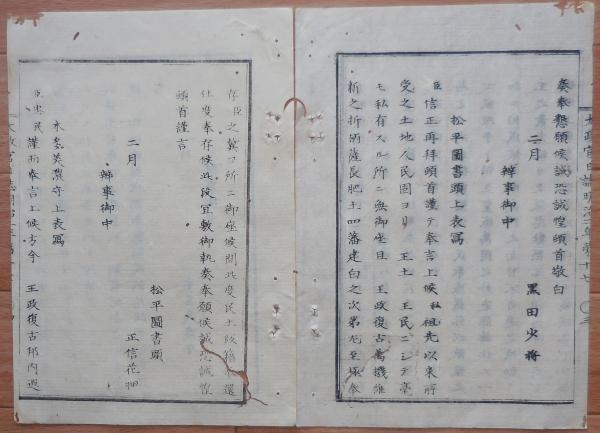 奏奉懇願候誠恐誠惶頓首敬白
二月
黒田少将
辨事御中
松平圖書頭上表寫
臣信正再拜頓首謹テ奉言上候私祖先以来所
受之土地人民固ヨリ 王土 王民ニシテ毫
モ私有スル所ニ無御座且 王政復古萬機維
新之折柄薩長肥土四藩建白之次第尤至極奉
存臣之冀フ所ニ御座候間此度民土版籍還
仕度奉存候此段宜敷御執奏奉願候誠恐誠惶
頓首謹言
二月
松平圖書頭
正信花押
辨事御中
水野美濃守上表寫
臣忠民謹而奉言上候方今 王政復古邦内